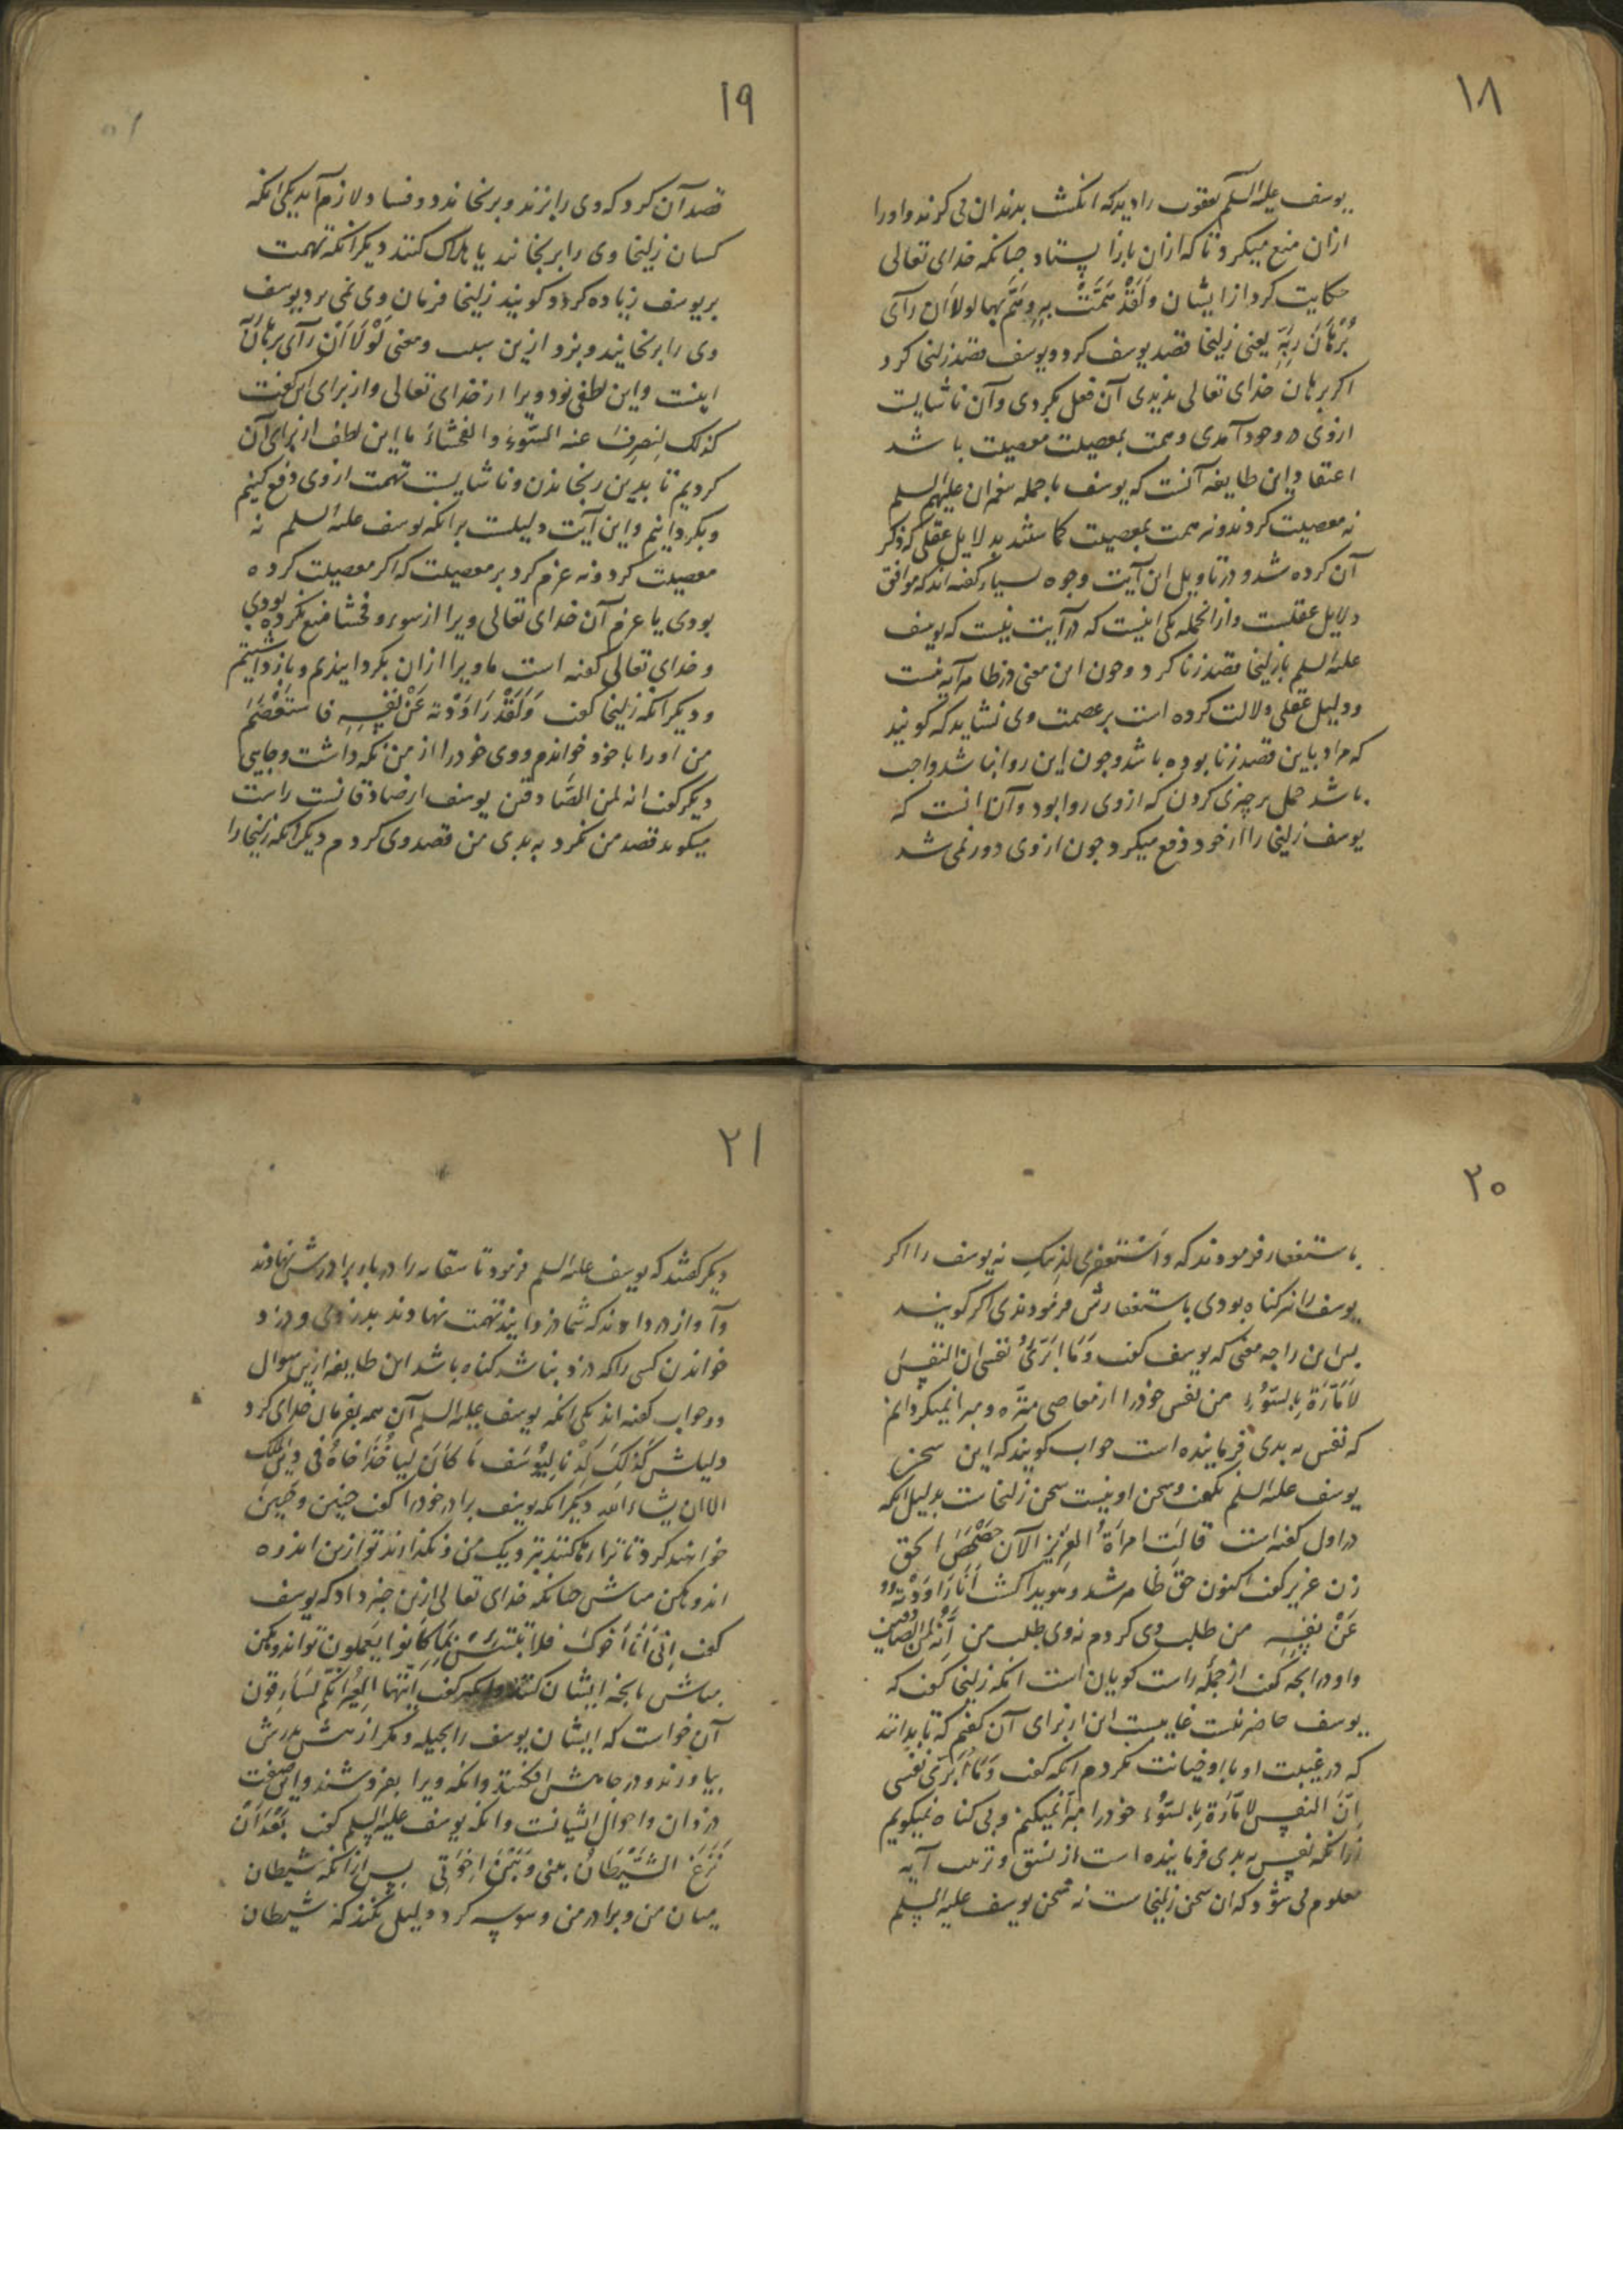 ۱۸
یوسف علیه السلم یعقوب را دید که انگشت بدندان می کزند و او را
ازان منع میکرد تا که ازان باز ایستاد چنانکه خدای تعالی
حکایت کرد از ایشان وَلَقَدْ هَمَّتْ بِهِ وهَمَّ بها لولا اَن رآی
بُرْهَانَ رَبِّهِ یعنی زلیخا قصد یوسف کرد و یوسف قصد زلیخا کرد
اکر برهان خدای تعالی ندیدی آن فعل بکردی و آن ناشایست
ازوی در وجود آمدی و همت بمعصیت معصیت باشد
اعتقاد این طایفه آنست که یوسف با جمله پیغمبران علیهم السلم
نه معصیت کردند و نه همت بمعصیت کماشتند بدلایل عقلی که ذکر
آن کرده شد و در تاویل این آیت وجوه بسیار گفته اند که موافق
دلایل عقلست و ازانجمله یکی اینست که در آیت نیست که یوسف
علیه السلم با زلیخا قصد زنا کرد و چون این معنی در ظاهر آیه نیست
و دلیل عقلی دلالت کرده است بر عصمت وی نشاید که گویند
که مراد باین قصد زنا بوده باشد و چون این روا نباشد واجب
باشد حمل بر چیزی کردن که ازوی روا بود و آن انست که
یوسف زلیخا را از خود دفع میکرد چون ازوی دور نمی شد
۱۹
قصد آن کرد که وی را بزند و برنجاند دو فساد لازم آمد یکی انکه
کسان زلیخا وی را برنجانند یا هلاک کنند دیگر انکه تهمت
بر یوسف زیاده کردد و گویند زلیخا فرمان وی نمی برد یوسف
وی را برنجانید و بزد ازین سبب و معنی لَوْلَا اَنْ رَآی برهان
اینست و این لطفی بود ویرا از خدای تعالی و از برای این گفت
کذلک لِنصرِفَ عنه السّوءَ و الفحشاءَ ما این لطف از برای آن
کردیم تا بدین رنجاندن و ناشایست تهمت ازوی دفع کنیم
و بکردانیم و این آیت دلیلست برانکه یوسف علیه السلم نه
معصیت کرد و نه عزم کرد بر معصیت که اکر معصیت کرده
بودی یا عزم آن خدای تعالی ویرا از سوء و فحشا منع نکرده بودی
و خدای تعالی گفته است ما ویرا ازان بکردانیدیم و باز داشتیم
و دیگر انکه زلیخا گفت وَلَقَدْ رَاوَدْته عَنْ نَفْسِهِ فاستَعْصَمَ
من او را با خود خواندم و وی خود را از من نگه داشت و جایی
دیگر گفت انه لمن الصّادقین یوسف از صادقانست راست
میگوید قصد من نکرد به بدی من قصد وی کردم دیگر انکه زلیخا را
۲۰
باستغفار فرمودند که وَاسْتَغفِری لِذنبکِ نه یوسف را اکر
یوسف را نیز گناه بودی باستغفارش فرمودندی اکر گویند
پس این را چه معنی که یوسف گفت وَمَا اُبَرِّئُ نفسی ان النفسَ
لاَمّارَة بِالسّوُءِ من نفس خود را از معاصی منزّه و مبرا نمیکردانم
که نفس به بدی فرماینده است جواب گویند که این سخن
یوسف علیه السلم نگفت و سخن او نیست سخن زلیخاست بدلیل انکه
در اول گفته است قالَتِ امراَةُ العزیزِ الآن حَصْحَصَ الحق
زن عزیز گفت اکنون حق ظاهر شد و هویدا گشت اَنَا رَاوَدْتُهُ
عَنْ نفْسِهِ من طلب وی کردم نه وی طلب من اِنَّهُ لمن الصّادقین
و او درانچه گفت از جملهٔ راست گویان است انکه زلیخا گفت که
یوسف حاضر نیست غایبست این از برای آن گفتم که تا بداند
که در غیبت او با او خیانت نکردم انکه گفت وَمَا اُبَرّئ نفسی
اِنّ النفس لامّارَة بِالسّوُءِ خود را مبرّا نمیکنم و بی گناه نمیگویم
زیرانکه نفس به بدی فرماینده است از نسق و ترتیب آیه
معلوم می شود که این سخن زلیخاست نه سخن یوسف علیه السلم
۲۱
دیگر گفتند که یوسف علیه السلم فرمود تا سقایه را در بار برادرش نهادند
و آواز در دادند که شما دزدانید تهمت نهادند بدزدی و دزد
خواندن کسی را که دزد نباشد گناه باشد این طایفه ازین سوال
دو جواب گفته اند یکی انکه یوسف علیه السلم آن همه بفرمان خدای کرد
دلیلش کَذلکَ کِدْنا لِیُوسُفَ مَا کَانَ لیاخُذَ اخاهُ فی دین الملک
الا ان یشاء الله دیگر انکه یوسف برادر خود را گفت چنین و چنین
خواهند کرد تا ترا رها کنند بنزدیک من و نگذارند تو ازین اندوه
اندوهگین مباش چنانکه خدای تعالی ازین خبر داد که یوسف
گفت اِنّی اَنَا اَخوکَ فلا تبتئس بِمَا کانوا یَعملون تو اندوهگین
مباش بانچه ایشان کنند و انکه گفت اَیّتها العِیرُ انّکم لسَارقون
آن خواست که ایشان یوسف را بحیله و مکر از پیش پدرش
بیاوردند و در چاهش افکندند و انکه ویرا بفروشند و این صفت
دزدان و احوال ایشانست و انکه یوسف علیه السلم گفت بَعْدَ اَنْ
نَزَغَ الشَّیْطَانُ بینی وَ بَیْنَ اِخوَتِی پس ازانکه شیطان
میان من و برادر من وسوسه کرد دلیل نکند که شیطان